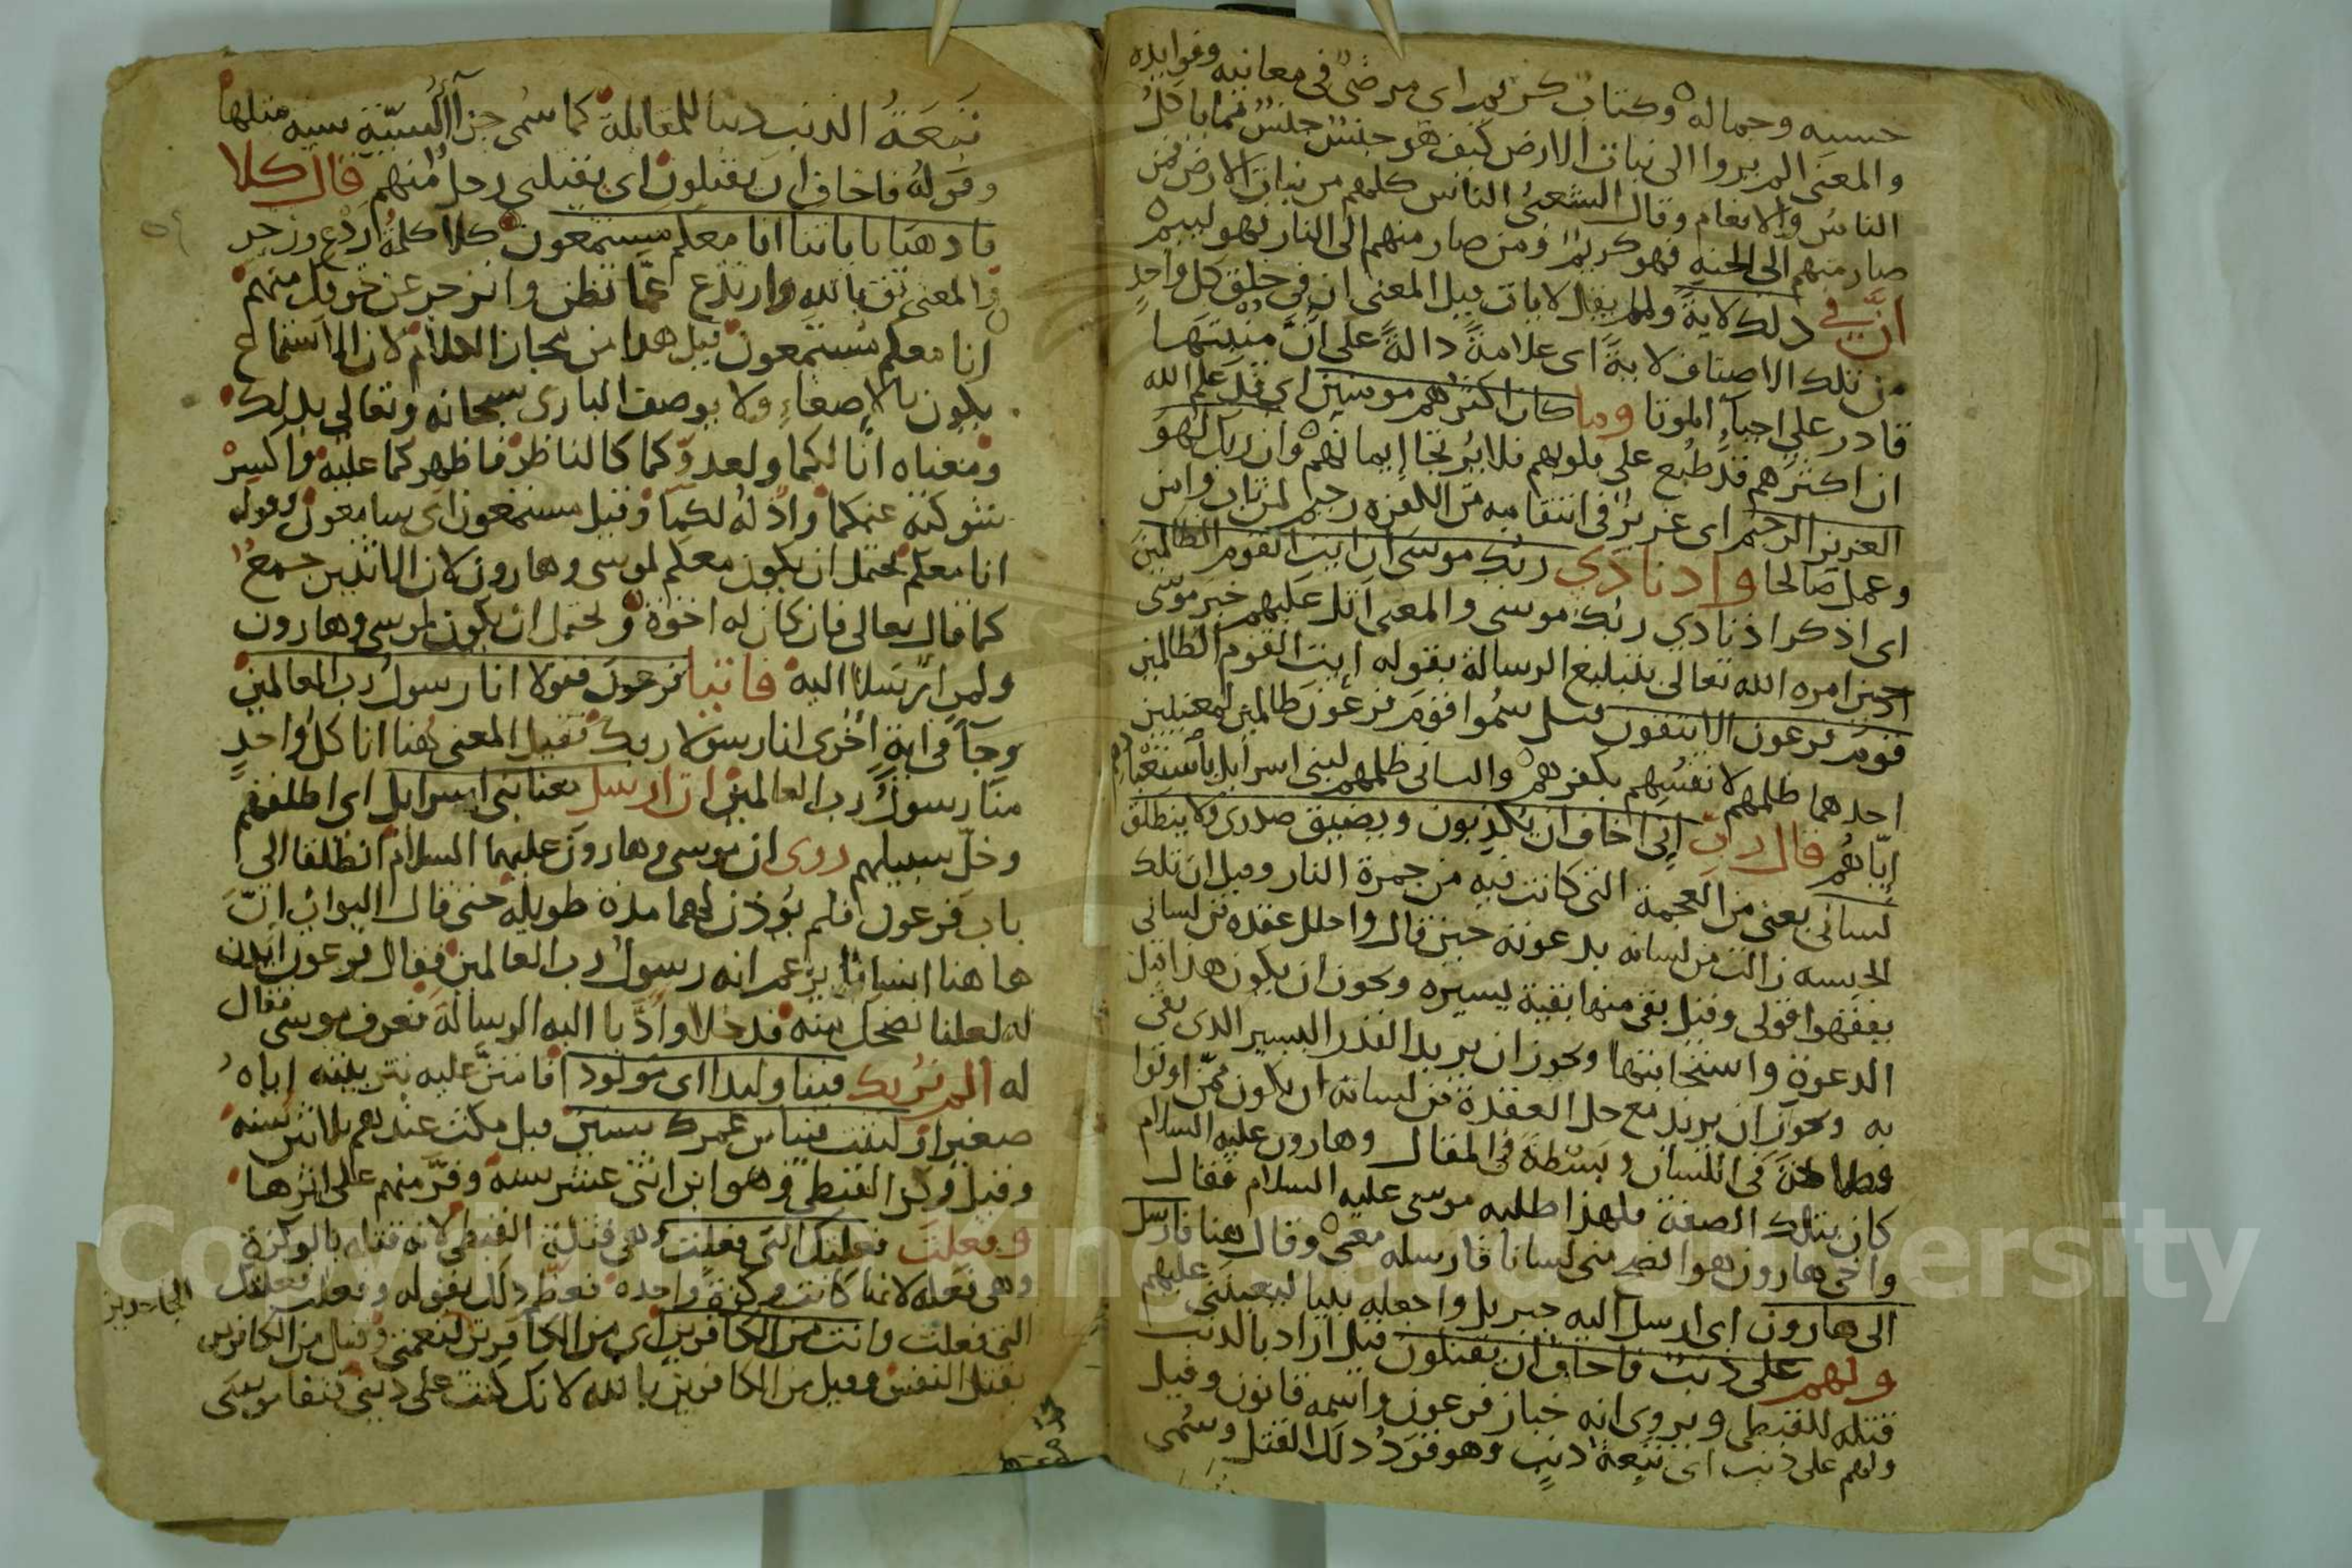 حسنه وجماله وكتاب كريم اى مرضى فى معانيه وفوايده
والمعنى المربروا الى نبات الارض كيف هو جنس جنس مما ياكل
الناس والانعام وقال الشعبى الناس كلهم من نبات الارض فمن
صار منهم الى الجنه فهو كريم ومن صار منهم الى النار فهو لييم
ان فى ذلك لاية ولم يقل لايات قيل المعنى ان فى خلق كل واحد
من تلك الاصناف لاية اى علامة دالة على ان منبتها
قادر على احياء الموتا وما كان اكثرهم مومنين اى قد علم الله
ان اكثرهم قد طبع على قلوبهم فلا يرتجا إيمانهم وان ربك لهو
العزيز الرحيم اى عزيز فى انتقامه من الكفره رحيم لمن تاب وامن
وعمل صالحا واد نادي ربك موسى ان ايت القوم الظالمين
اى اذكر اذ نادي ربك موسى والمعنى اتل عليهم خبر موسى
حين امره الله تعالى بتبليغ الرسالة بقوله إيت القوم الظالمين
قوم فرعون الا يتقون سموا قوم فرعون ظالمين لمعنيين
احدهما ظلمهم لانفسهم بكفرهم والثانى ظلمهم لبنى اسرايل باستعبادهم
إياهم قال رب إنى اخاف ان يكذبون ويضيق صدرى ولا ينطلق
لسانى يعنى من العجمة التى كانت فيه من جمرة النار وقيل ان تلك
الحبسه زالت من لسانه بدعوته حين قال واحلل عقده من لسانى
يفقهوا قولى وقيل بقى منها بقية يسيره ويجوز ان يكون هذا قبل
الدعوة واستجابتها ويجوز ان يريد القدر اليسير الذى بقى
به ويجوز ان يريد مع حل العقدة من لسانه ان يكون ممن اوتوا
فى اللسان وبسطة فى المقال وهارون عليه السلام
كان بتلك الصفة فلهذا طلبه موسى عليه السلام فقال
واخى هارون هو افصح منى لسانا فارسله معى وقال هنا فارسل
الى هارون اى ارسل اليه جبريل واجعله نبيا ليعيننى عليهم
ولهم على ذنب فاخاف ان يقتلون قيل اراد بالذنب
قتله للقبطى ويروى انه خباز فرعون واسمه قانون وقيل
ولهم على ذنب اى تبعة ذنب وهو قود ذلك القتل وسمى
تبعة الذنب ذنبا للمقابلة كما سمى جزآ السيية سيية مثلها
وقوله فاخاف ان يقتلون اى يقتلنى رجل منهم قال كلا
فاذهبا باياتنا انا معكم مستمعون كلا كلمة ردع وزجر
والمعنى ثق بالله وارتدع عما تظن وانزجر عن خوفك منهم
انا معكم مستمعون قيل هذا من مجاز الكلام لان الاستماع
يكون بالاصغاء ولا يوصف البارى سبحانه وتعالى بذلك
ومعناه انا لكما ولعدوكما كالناظر فاظهركما عليه واكسر
شوكته عنكما واذله لكما وقيل مستمعون اى سامعون وقوله
انا معكم يحتمل ان يكون معكم لموسى وهارون لان الاثنين جمع
كما قال تعالى فان كان له اخوة ويحتمل ان يكون لموسى وهارون
ولمن ارسلا اليه فاتيا فرعون فقولا انا رسول رب العالمين
وجآ فى اية اخرى انا رسولا ربك فقيل المعنى هنا انا كل واحد
منا رسول رب العالمين ان ارسل معنا بنى اسرايل اى اطلقهم
وخل سبيلهم روى ان موسى وهارون عليهما السلام انطلقا الى
باب فرعون فلم يوذن لهما مدة طويلة حتى قال البواب ان
هاهنا انسانا يزعم انه رسول رب العالمين فقال فرعون ايذن
له لعلنا نضحك منه فدخلا وادبا اليه الرسالة فعرف موسى فقال
له الم نربك فينا وليدا اى مولود افامتن عليه بتربيته إياه
صغيرا ولبثت فينا من عمرك سنين قيل مكث عندهم ثلاثين سنه
وقيل وكز القبطى وهو ابن اثنى عشر سنة وفر منهم على اثرها
وفعلت فعلتك التى فعلت وهى قتلة القبطى لانه قتله بالوكزة
وهى فعله لانها كانت وكزة واحده فعظم ذلك بقوله وفعلت فعلتك
التى فعلت وانت من الكافرين اى من الكافرين لنعمتى وقيل من الكافرين
بقتل النفس وقيل من الكافرين بالله لانك كنت على ديننا موسى
الجاحدين
Copyright © King Saud University